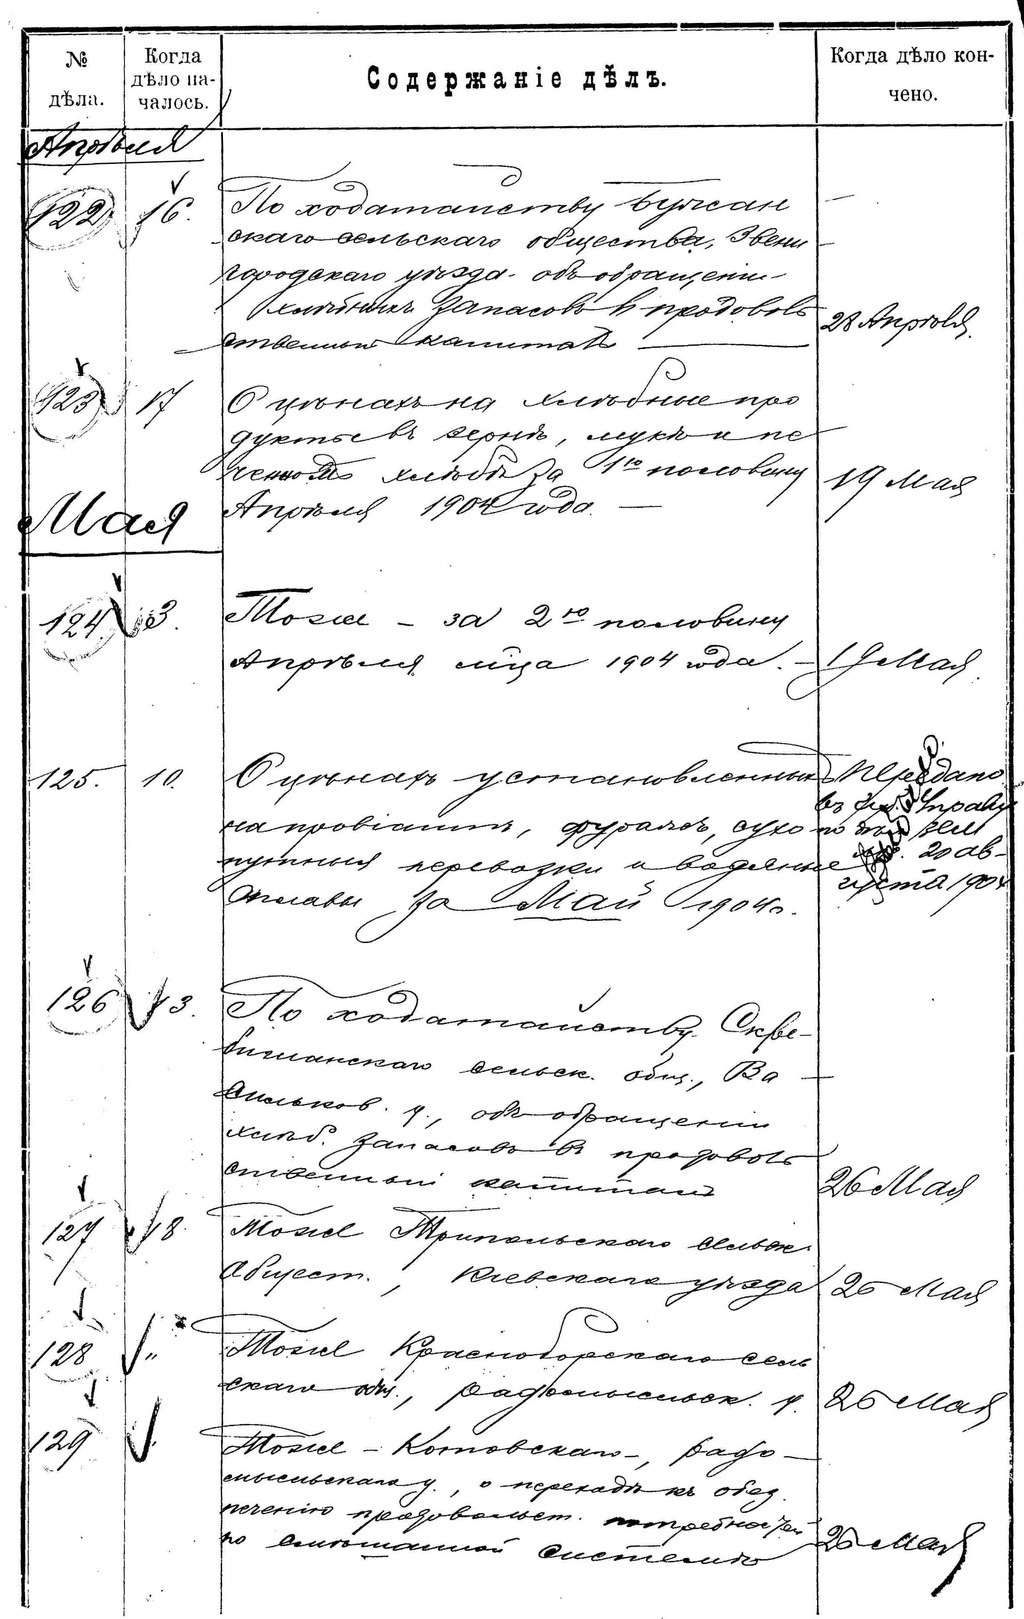 № дѣла.
Когда дѣло началось.
Содержаніе дѣлъ.
Когда дѣло кончено.
Апрѣля
122 16. По ходатайству
скаго сельскаго общества, Звени
городскаго уѣзда объ обращеніи
хлѣбныхъ запасовъ въ продоволь
ственный капиталъ 28 Апрѣля.
123 17 О цѣнахъ на хлѣбные про
дукты въ зернѣ, мукѣ и пе
ченомъ хлѣбѣ за 1ю половину 19 Мая
Апрѣля 1904 года. —
Мая
124 3. Тоже – за 2ю половину
Апрѣля м-ца 1904 года. – 19 Мая
125. 10. О цѣнахъ установленныхъ Передано
на провіантъ, фуражъ, сухо въ Управу
путныя перевозки и водяные 20 ав-
сплавы за Май 1904 г. густа 1904
126 13. По ходатайству
сельск. общ., Ва
сильков. у., объ обращеніи
хлѣб. запасовъ въ продоволь
ственный капиталъ 26 Мая
127 18. Тоже Трипольскаго сельск.
общест., Кіевскаго уѣзда 26 Мая
128 „ Тоже Красноборскаго сель
скаго общ., Радомысльск. у. 26 Мая
129 Тоже – Котовскаго –, Радо–
мысльскаго у., о переходѣ къ обез
печенію продовольст. потребностей
по смѣшанной системѣ 26 Мая